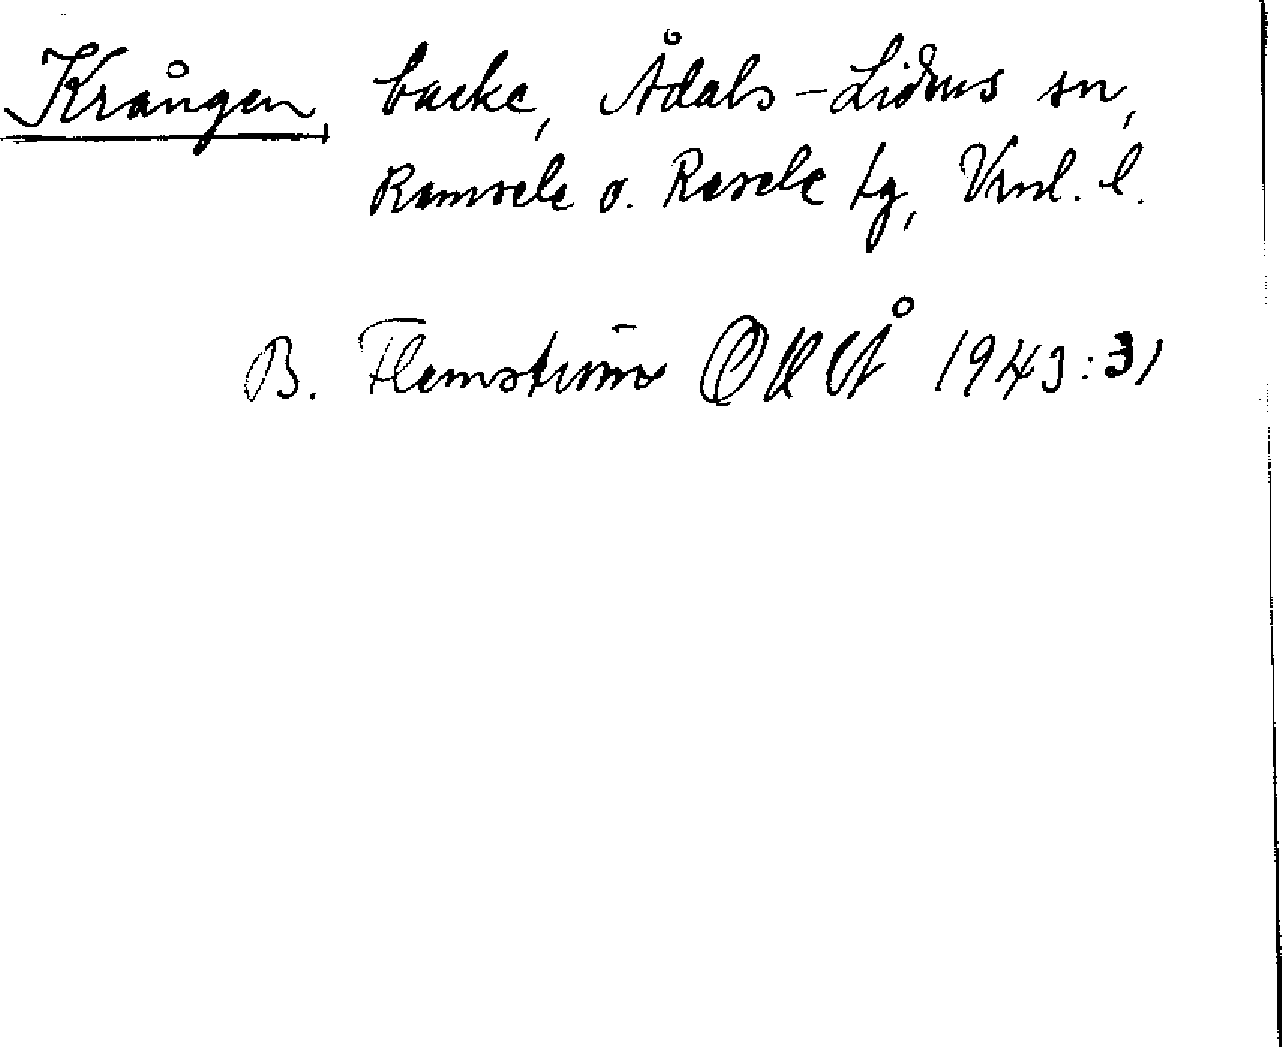 Krången, backe, Ådals-Lidens sn,
Ramsele o. Resele tg, Vnl. l.
B. Flemström OUÅ 1943:31